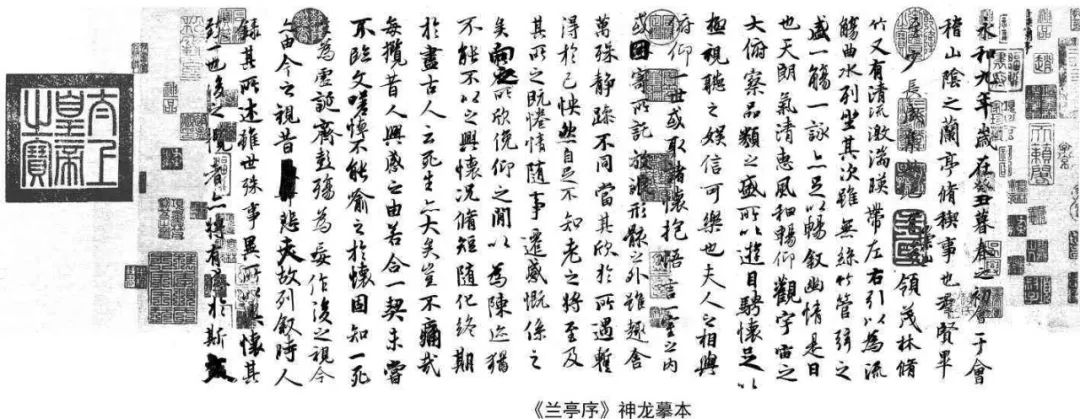 永和九年歲在癸丑暮春之初會于會
稽山陰之蘭亭脩稧事也羣賢畢
至少長咸集領茂林脩
竹又有清流激湍暎帶左右引以為流
觴曲水列坐其次雖無絲竹管弦之
盛一觴一詠亦足以暢敘幽情是日
也天朗氣清惠風和暢仰觀宇宙之
大俯察品類之盛所以遊目騁懷足以
極視聽之娛信可樂也夫人之相與
俯仰一世或取諸懷抱悟言一室之內
或因寄所託放浪形骸之外雖趣舍
萬殊靜躁不同當其欣於所遇暫
得於己怏然自足不知老之將至及
其所之既惓情隨事遷感慨係之
矣向之所欣俛仰之間以為陳迹猶
不能不以之興懷況脩短隨化終期
於盡古人云死生亦大矣豈不痛哉
每攬昔人興感之由若合一契未嘗
不臨文嗟悼不能喻之於懷固知一死
生為虛誕齊彭殤為妄作後之視今
亦由今之視昔悲夫故列敘時人
錄其所述雖世殊事異所以興懷其
致一也後之攬者亦將有感於斯文
太上
皇帝
之寶
《兰亭序》神龙摹本